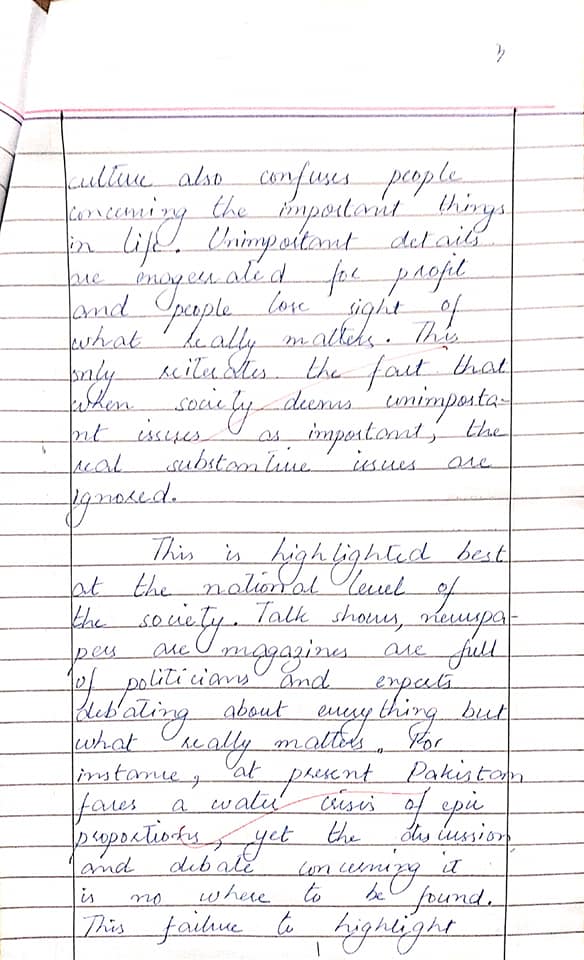 3
culture also confuses people
concerning the important things
in life. Unimportant details
are exaggerated for profit
and people lose sight of
what really matters. This
only reiterates the fact that
when society deems unimporta-
nt issues as important, the
real substantive issues are
ignored.
This is highlighted best
at the national level of
the society. Talk shows, newspa-
pers are magazines are full
of politicians and experts
debating about everything but
what really matters. For
instance, at present Pakistan
faces a water crisis of epic
proportions, yet the discussion
and debate concerning it
is no where to be found.
This failure to highlight